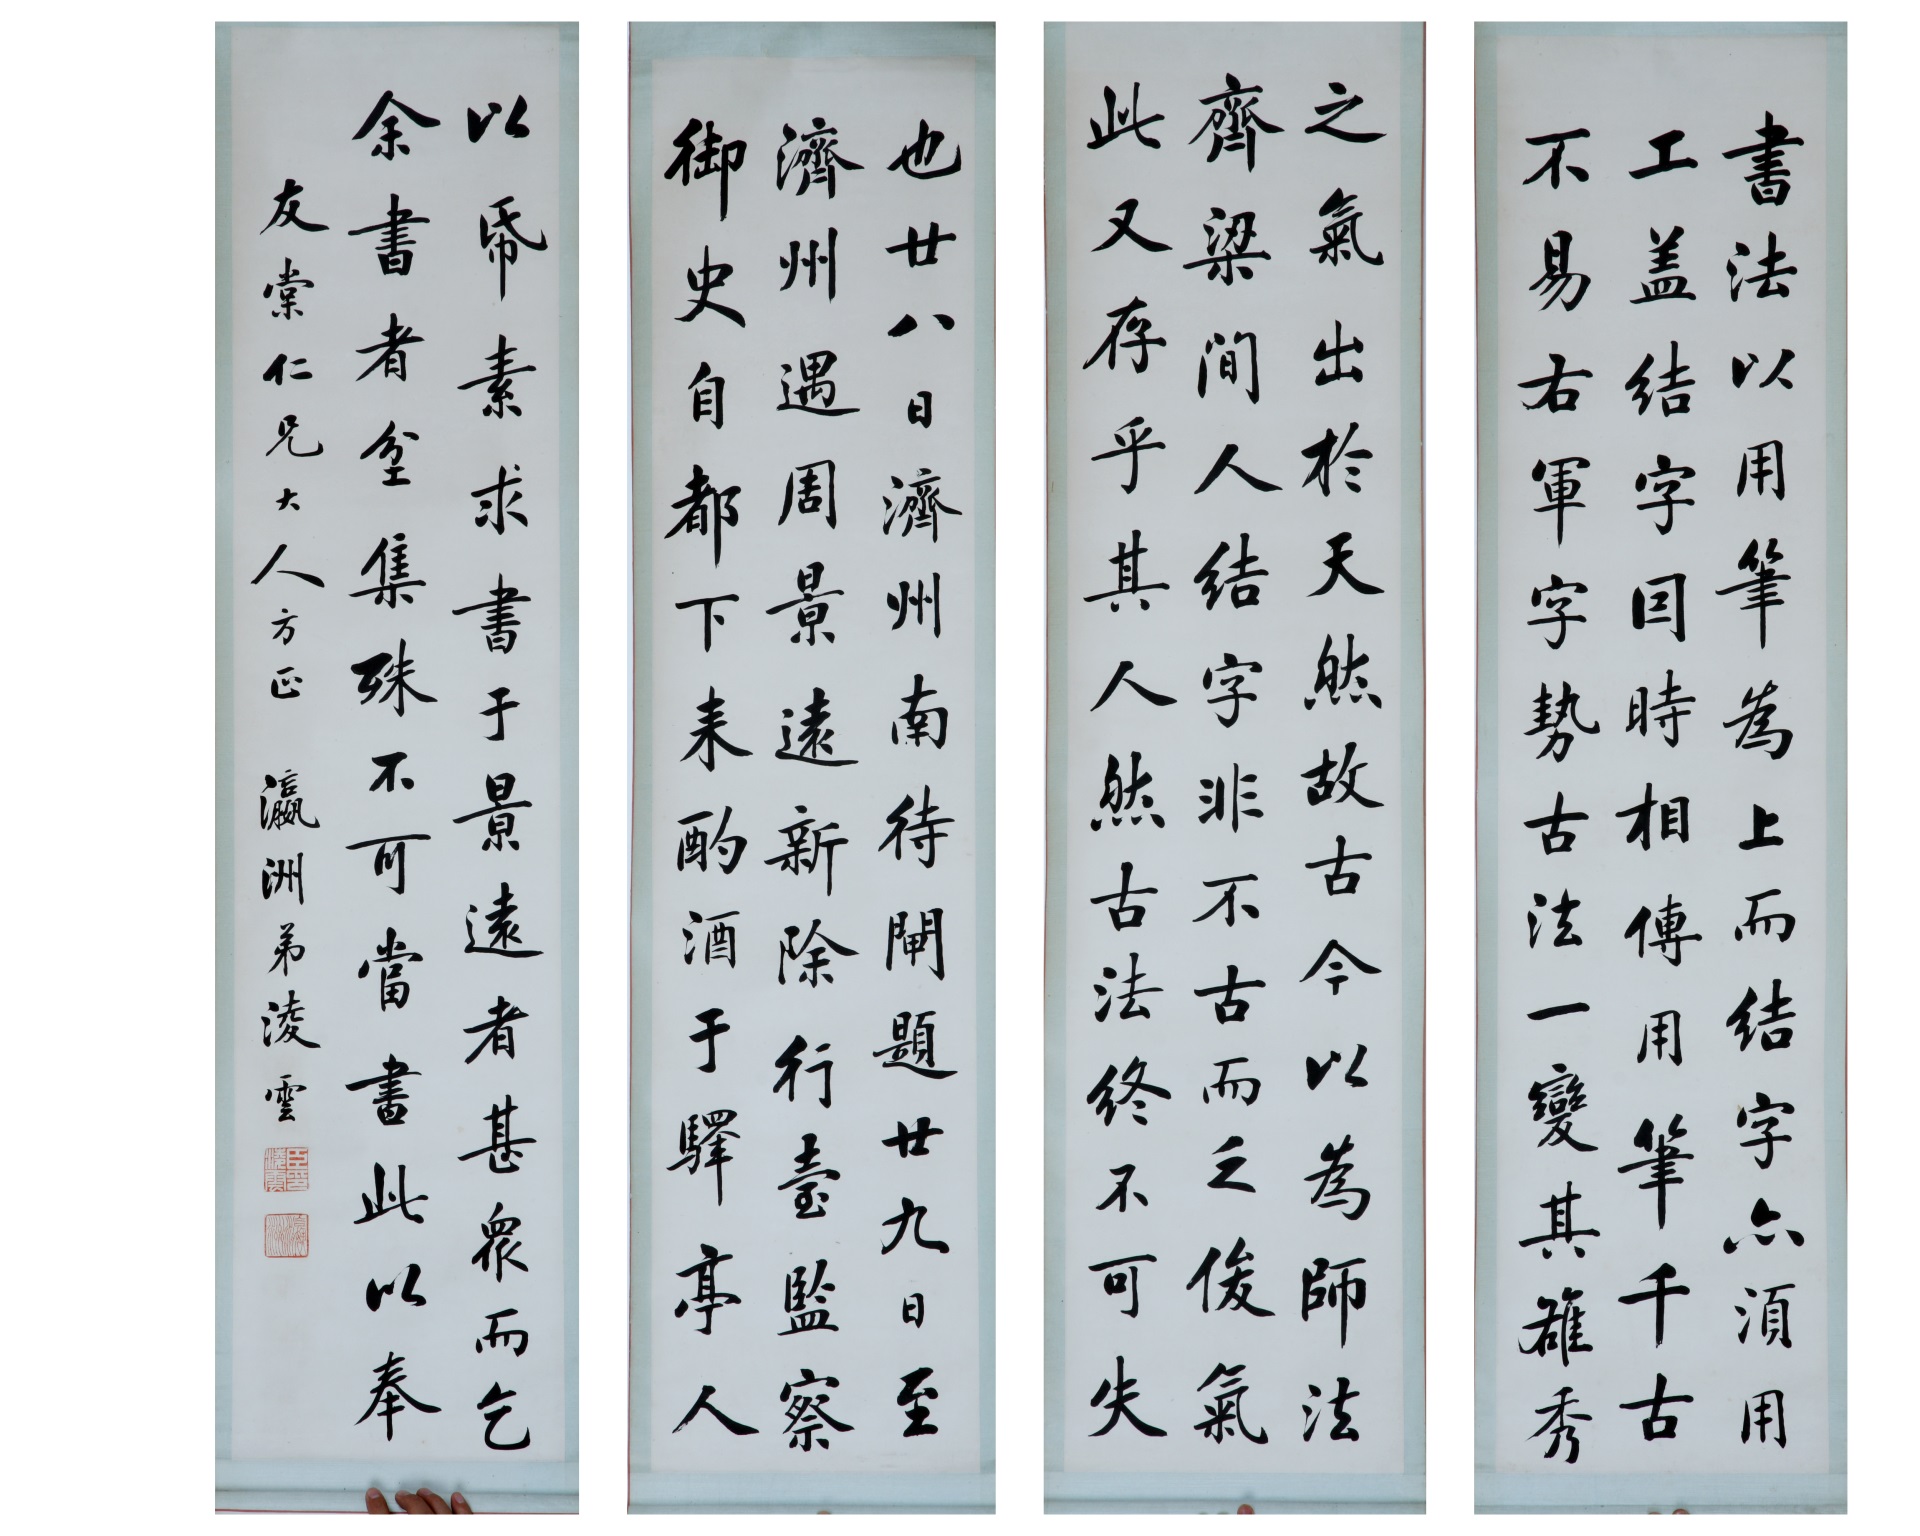 書法以用筆為上而結字亦須用
工盖結字囙時相傳用筆千古
不易右軍字勢古法一變其雄秀
之氣出於天然故古今以為師法
齊梁間人結字非不古而乏俊氣
此又存乎其人然古法終不可失
也廿八日濟州南待閘題廿九日至
濟州遇周景遠新除行臺監察
御史自都下来酌酒于驛亭人
以帋素求書于景遠者甚衆而乞
余書者坌集殊不可當書此以奉
友棠仁兄大人方正 瀛洲弟淩雲
瀛洲